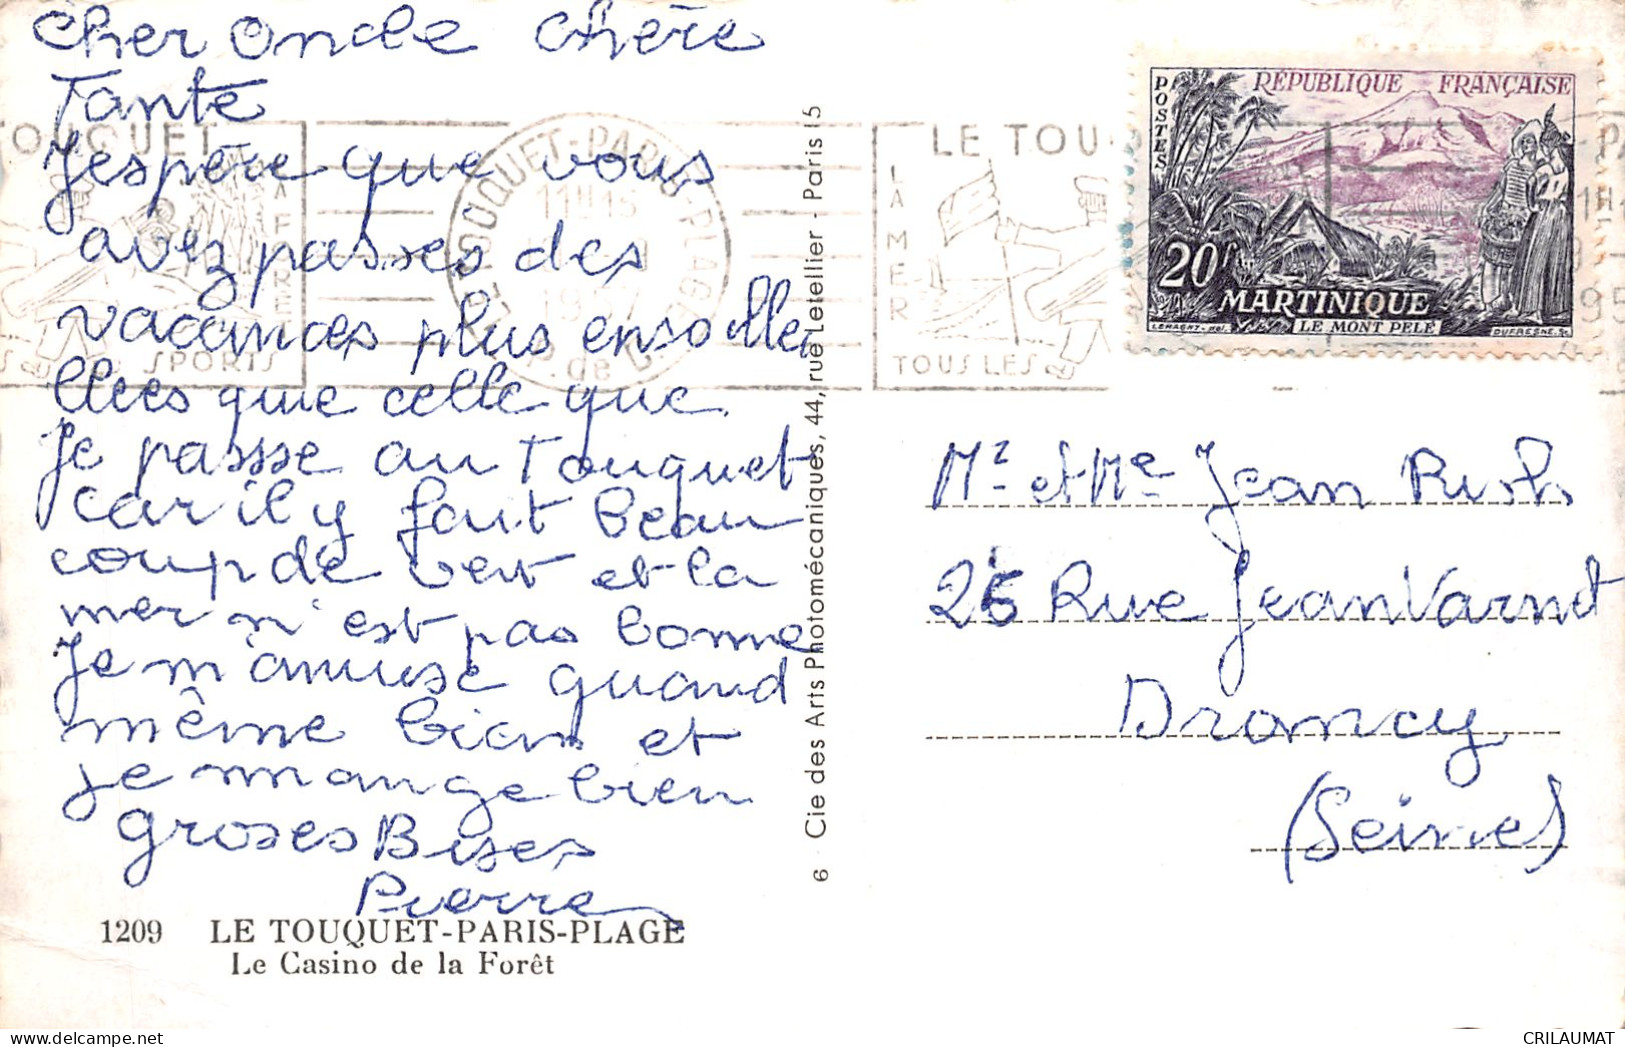 Cher Oncle chère
Tante
J'espère que vous
avez passes des
vacances plus ensolles
lllees que celle que
Je passse au Touquet
car il y fait beau
coup de vent et la
mer n'est pas bonne
Je m'amuse quand
même bien et
je mange bien
groses Bises
Pierre
1209 LE TOUQUET-PARIS-PLAGE
Le Casino de la Forêt
6 Cie des Arts Photomécaniques, 44, rue Letellier - Paris 15
TOUQUET
LA FORET
SPORTS
LE TOUQUET-PARIS-PLAGE
11H15
1957
P. de C.
LE TOU
LA MER
TOUS LES
POSTES
RÉPUBLIQUE FRANÇAISE
20f
MARTINIQUE
LE MONT PELÉ
DUFRESNE. Sc.
Mr et Me Jean
26 Rue Jean Varnet
Drancy
(Seine)
CRILAUMAT